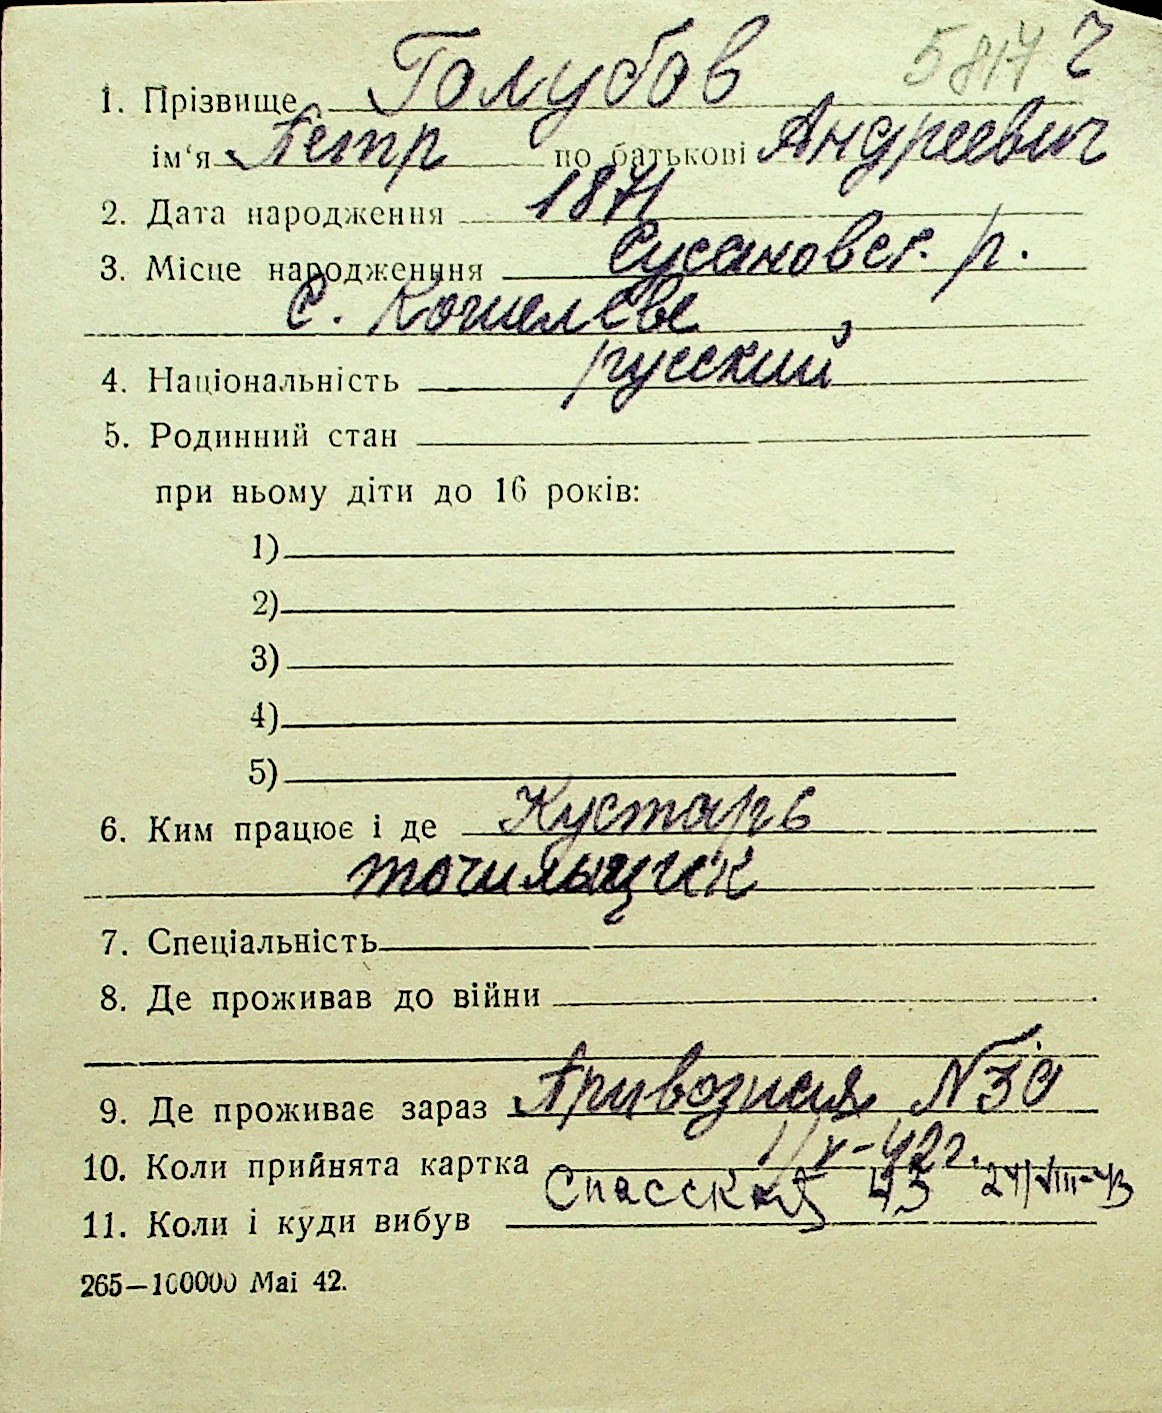 5817 2
1. Прізвище Голубов
ім'я Петр по батькові Андреевич
2. Дата народження 1871
3. Місце народженння Сусановск. р.
С. Кошелеве
4. Національність русский
5. Родинний стан
при ньому діти до 16 років:
1)
2)
3)
4)
5)
6. Ким працює і де Кустарь
точильщик
7. Спеціальність
8. Де проживав до війни
9. Де проживає зараз Привозная №30
10. Коли прийнята картка 1/X-42г.
Спасская 43 24/VIII-43
11. Коли і куди вибув
265—100000 Маі 42.